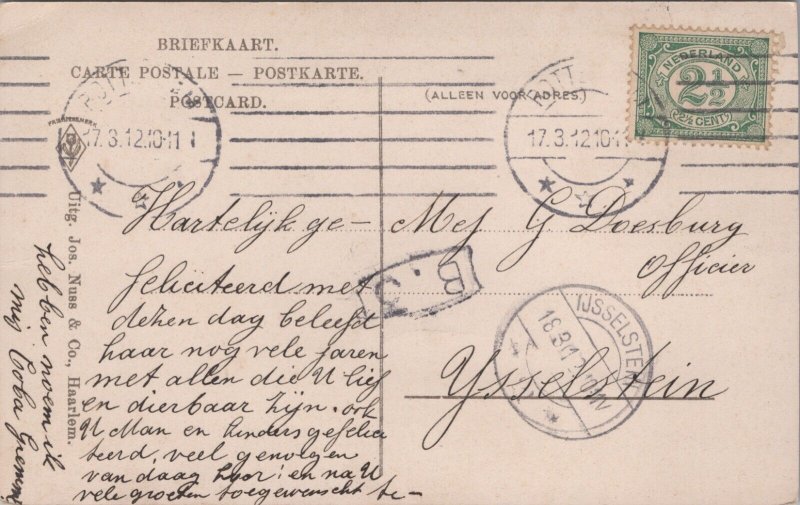 BRIEFKAART.
CARTE POSTALE — POSTKARTE.
POSTCARD.
(ALLEEN VOOR ADRES)
NEDERLAND
2½
(2½ CENT)
17.3.12 10-11
17.3.12 10-11
FABRIEKSMERK
Uitg. Jos. Nuss & Co., Haarlem.
Hartelijk ge-
feliciteerd met
dezen dag beleefd
haar nog vele jaren
met allen die U lief
en dierbaar zijn. ook
U Man en kinders gefelici
teerd, veel genoegen
van daag hoor! en na U
vele groeten toegewenscht te-
hebben noem ik
mij Coba
Mej G Doesburg
Officier
Ysselstein
B.3
IJSSELSTEIN